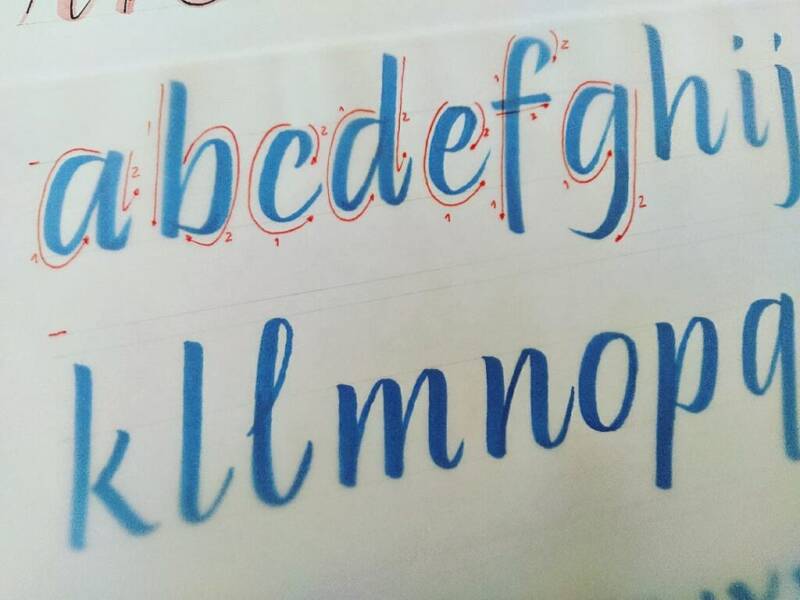 abcdefghij
kllmnopq